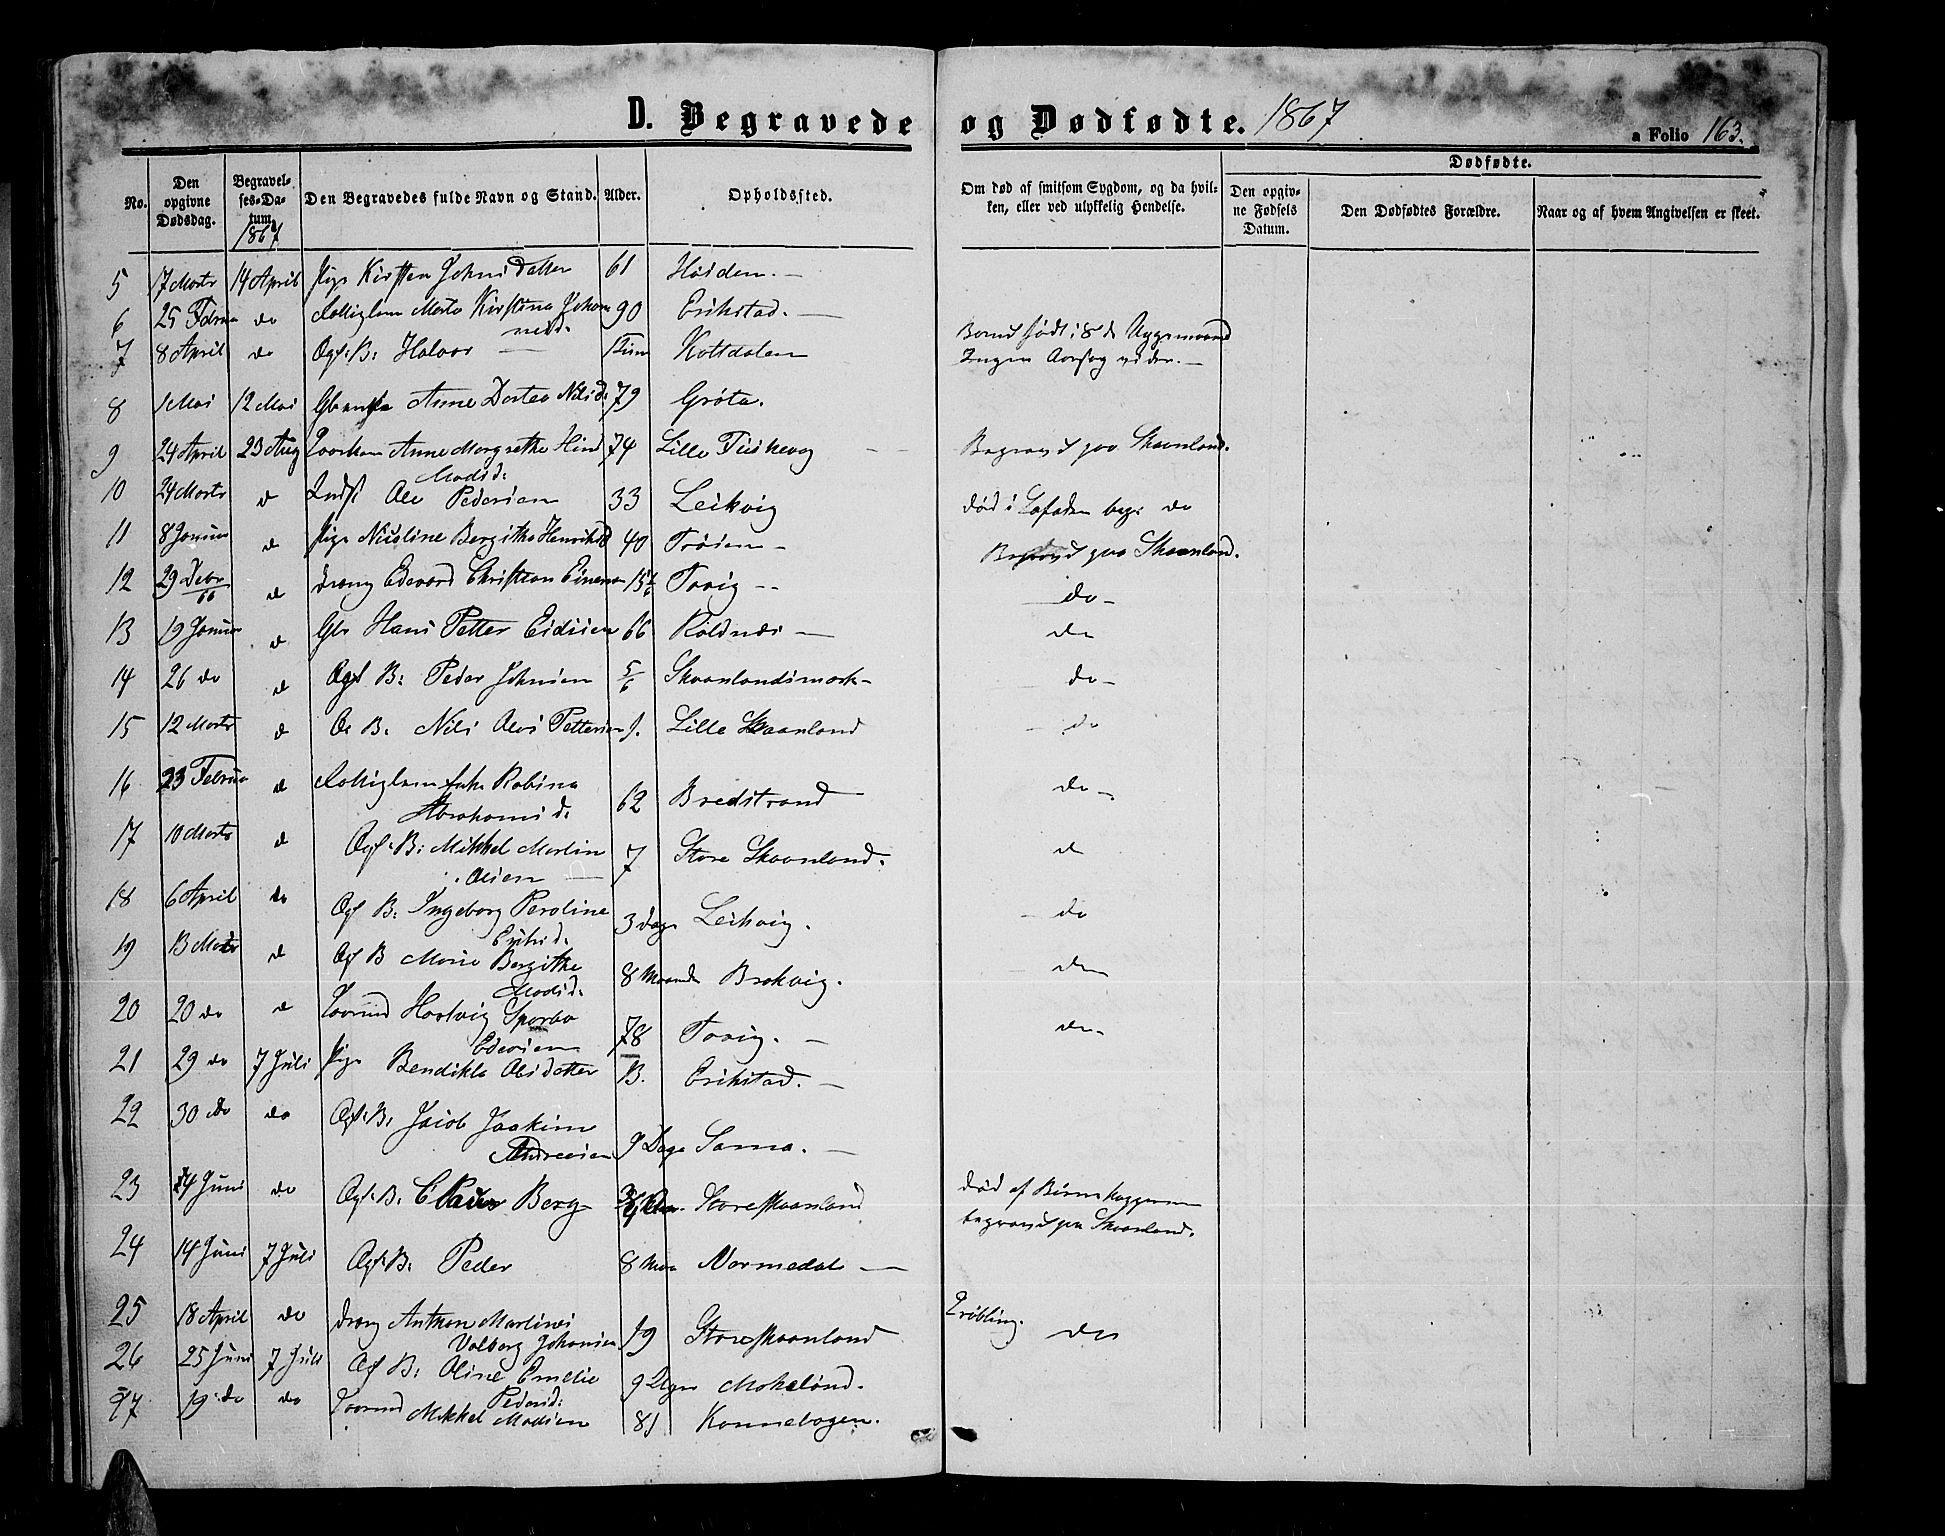 D. Begravede og Dødfødte. 1867
a Folio 163.
No. Den opgivne Dødsdag. Begravelses-Datum 1867 Den Begravedes fulde Navn og Stand. Alder. Opholdssted. Om død af smitsom Sygdom, og da hvilken, eller ved ulykkelig Hendelse. Dødfødte. Den opgivne Fødsels Datum. Den Dødfødtes Forældre. Naar og af hvem Angivelsen er skeet.
5 17 Marts 14 April Pige Kirsten Johnsdatter 61
6 25 Februa do Marta Kirstina Johannesd. 90 Erikstad.
7 8 April do Ogf. B: Halvor Kottdalen Barnet født i 8de
8 1 Mai 12 Mai Anne Dortea Nilsd. 79 Grøta.
9 24 April 23 Aug Anne Margrethe Hind Madsd. 74 Lille Begravet paa Skaanland.
10 24 Marts d Inds. Ole Pedersen 33 Leikvig død i Lofoten begr. do
11 8 Januar d Pige Nicoline Bergitha Henriksd 40 Trøsen Begravet paa Skaanland.
12 29 Debr/66 d Dreng Edevard Christian Einersen Tovig do
13 19 Januar d Gbr Hans Petter Eidisen 66 Roldnæs do
14 26 do d Ogf B: Peder Johnsen 5/6 Skaanlandsmark do
15 12 Marts d B. Nils Petterse 1. Lille Skaanland do
16 23 Februa d Robina Abrahamsd. 62 Bredstrand do
17 10 Marts d Ogf. B: Mikkel Martin Olsen 7 Store Skaanland. d
18 6 April do Ogf B: Ingeborg Peroline Eriksd. 3 Dage Leikvig. do
19 13 Marts d Ogf B Marie Bergitte Madsd. 8 Maaneder Brokvig. do
20 20 do d Hartvig Sparbo Edevsen 78 Tovig. do
21 29 do 7 Juli Pige Bendikta Olsdatter 13. Erikstad.
22 30 do do Ogf. B: Jacob Joakim Andreasen 9 Dage Sama.
23 24 Juni do Ogf. B: Claus Berg Store Skaanland død af Børnekopperne begravet paa Skaanland.
24 14 Juni 7 Juli Ogf. B: Peder 8 Maa Normedal
25 18 April do Dreng Anthon Martines Valberg Johansen 19 Store Skaanland
26 25 Juni 7 Juli Ogf B: Oline Emelie Pedersd: 9 Uger
27 19 do do Mikkel Madsen 81 Konnebogen.